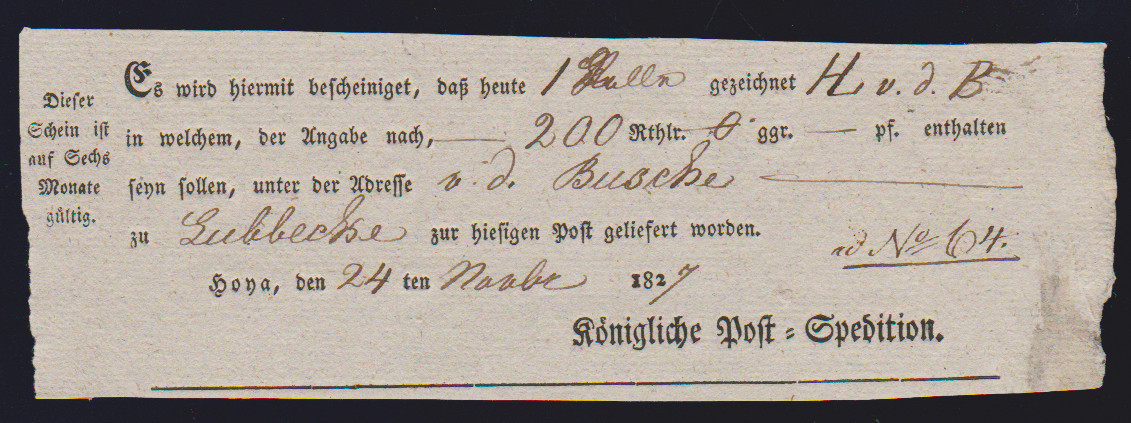 Dieser
Schein ist
auf Sechs
Monate
gültig.
Es wird hiermit bescheiniget, daß heute 1 Rolle gezeichnet H. v. d. B
in welchem, der Angabe nach, — 200 Rthlr. — 0 ggr. — pf. enthalten
seyn sollen, unter der Adresse v. d. Busche —
zu Lubbecke zur hiesigen Post geliefert worden.
ad No 64.
Hoya, den 24 ten Novbr 1827
Königliche Post = Spedition.